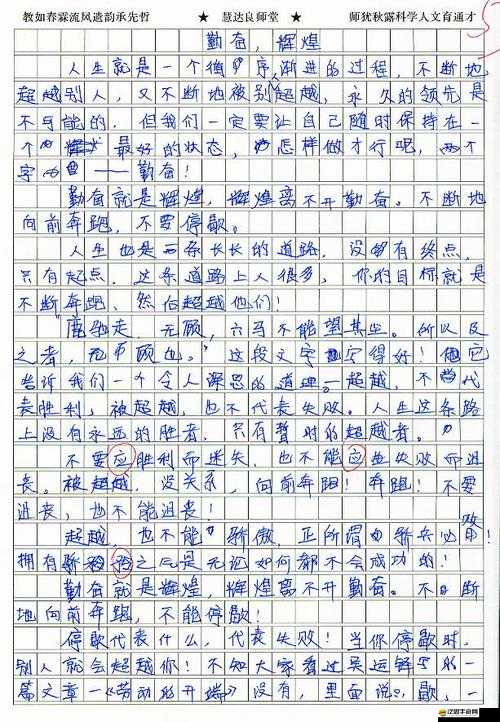 教如春霖流风遗韵承先哲 ★ 慧达良师堂 ★ 师犹秋露科学人文育通才
勤奋，辉煌
人生就是一个循序渐进的过程，不断地
超越别人，又不断地被别超越，永久的领先是
不可能的．但我们一定要让自己随时保持在一
个最好的状态，怎样做才行呢，两个
字——勤奋！
勤奋就是辉煌，辉煌离不开勤奋。不断地
向前奔跑，不要停歇。
人生也是一条长长的道路．没有终点，
只有起点．这条道路上人很多，你的目标就是
不断奔跑、然后超越他们！
"鹿驰走，无顾，六马不能望其尘。所以及
之者，顾也。"这段文字写得好！它
告诉我们一个令人深思的道理—超越，不代
表胜利，被超越，也不代表失败。人生这条路
上没有永远的胜者．只有暂时的超越者。
不要应胜利而迷失．也不能应失败而沮
丧。被超越．没关系，向前奔跑！奔跑！不要
沮丧，也不能沮丧！
超越，也不能骄傲．正所谓骄兵必败！
拥有之后是无论如何都不会成功的！
勤奋就是辉煌，辉煌离不开勤奋。不断
地向前奔跑，不能停歇！
停歇代表什么，代表失败！当你停歇时．
别人就会超越你！不知大家看过吴运铎写的一
篇文章—《劳动的开端》没有，里面说，歇，一